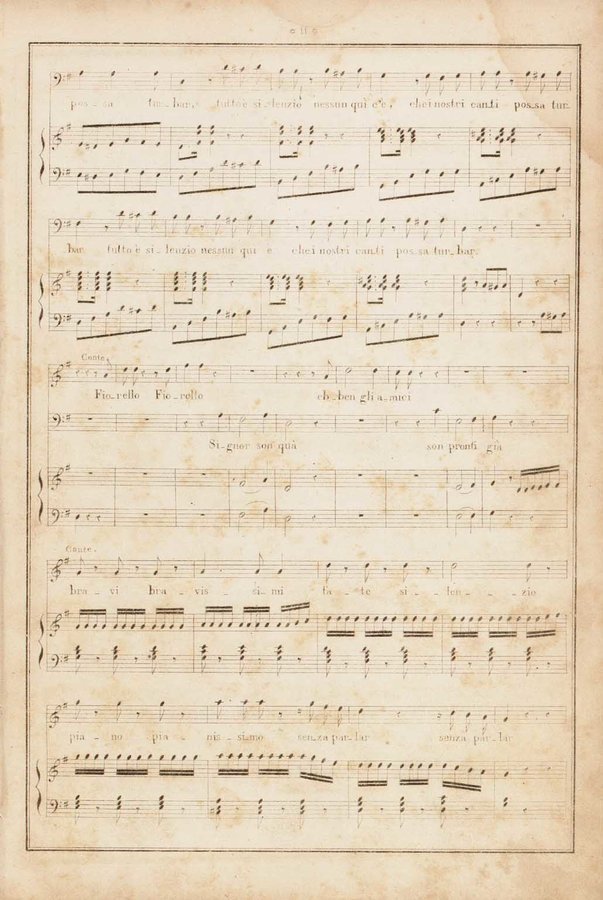 o 11 o
pos_sa tur_bar, tutto è si_lenzio nessun qui c'è, che i nostri can_ti pos_sa tur_
bar tutto è si_lenzio nessun qui è che i nostri can_ti pos_sa tur_bar.
Conte.
Fio_rello Fio_rello eh_ben gli a_mici
Si_gnor son quà son pronti già
Conte.
bra _ vi bra _ vis _ si_mi ta _ te si _ len _ zio
pia _ no pia _ nis _ si_mo sen_za par_lar senza par_lar